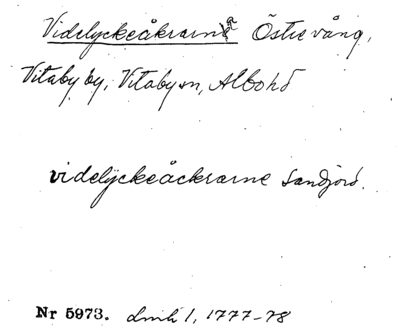 Videlyckeåkrarna Östre vång,
Vitaby by, Vitaby sn, Albo hd
videlÿckeåckrarne Sandjord.
Nr 5973. Lmh 1, 1777-78